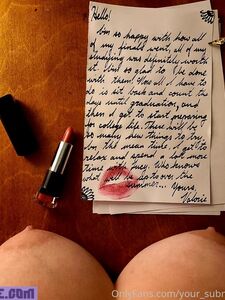 Hello!
I'm so happy with how all
of my finals went, all of my
studying was definitely worth
it but so glad to be done
with them! Now all I have to
do is sit back and count the
days until graduation, and
then I get to start preparing
for college life. There will be
so many new things to try,
in the mean time I get to
relax and spend a lot more
time with Who knows
what will be up to over the
summer...
Yours,
Valorie
E.COM
OnlyFans.com/your_subr